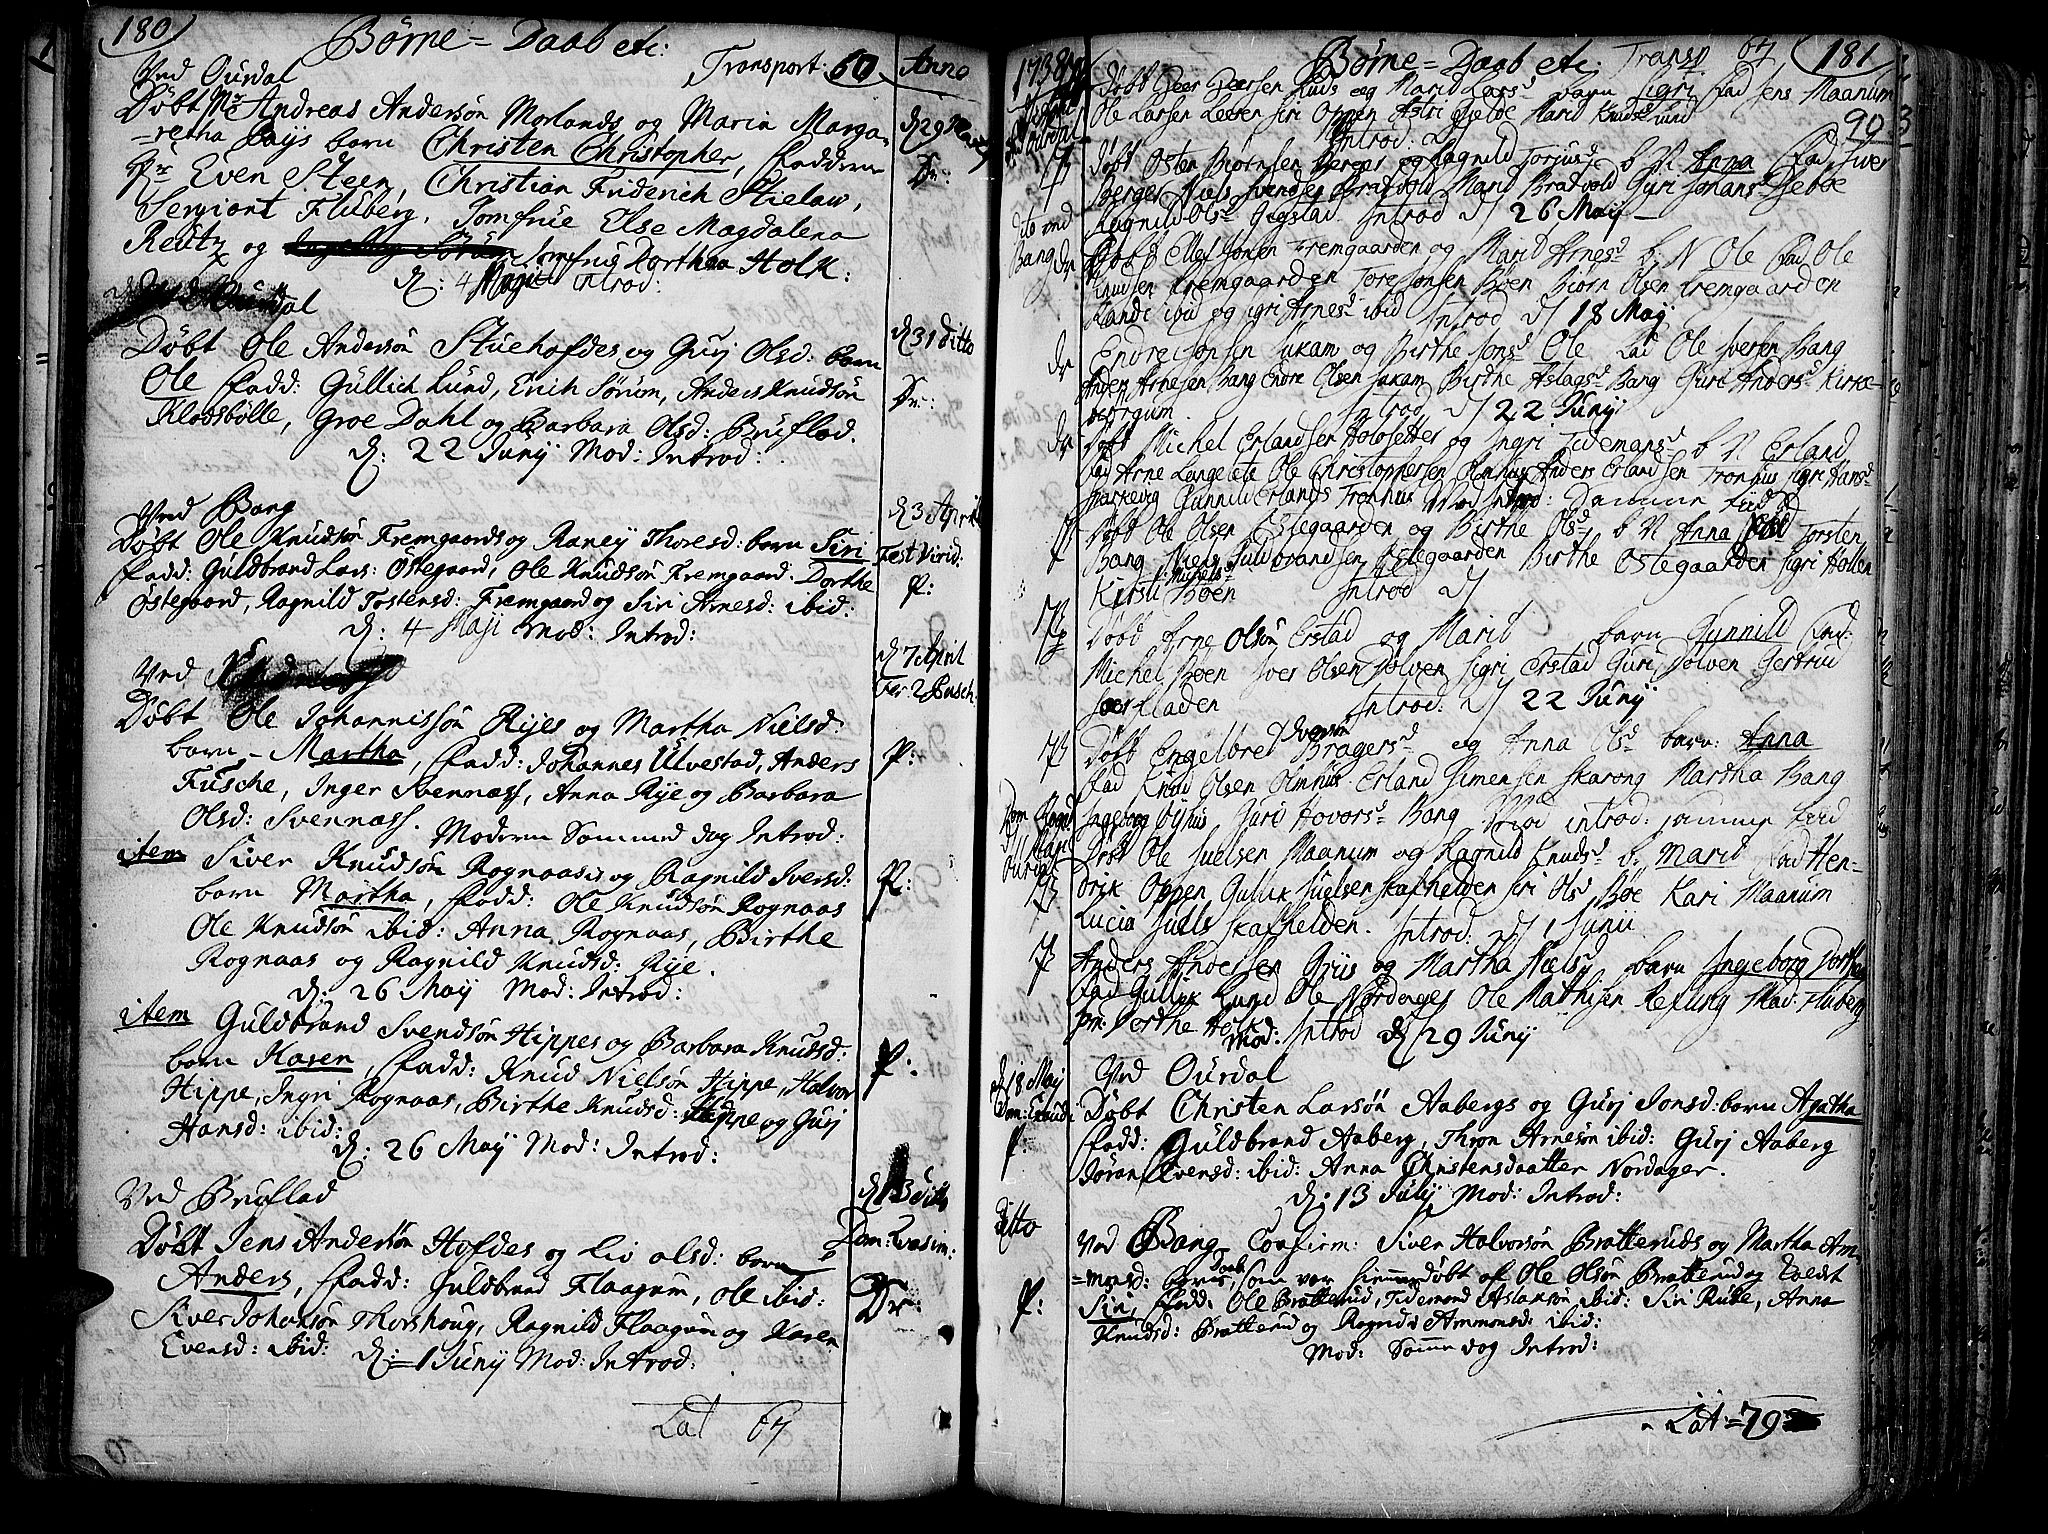 180
Børne = Daab etc:
Transport: 60
Anno
Ved Ourdal
Døbt Mr Andreas Andersøn Morlands og Maria Marga
=retha Pays barn Christen Christopher, Fadderne
Hr Even Steen, Christian Friderich Stielaw,
Sergiant Fluberg, Jomfrue Else Magdalena
Reutz og Jomfrue Dorthea Holk:
d: 4 Maji introd:
d 29 Martj
Dr:
Ourdal
Døbt Ole Andersøn Stuehofdes og Gurj Olsd: barn
Ole Fadd: Gullich Lund, Erich Sørum, Anders Knudsøn
Klodsbølle, Groe Dahl og Barbara Olsd: Bruflad.
d: 22 Junÿ Mod: Introd:
d 31 ditto
Dr:
Ved Bang
Døbt Ole Knudsøn Fremgaards og Raney Thoresd: barn Siri
Fadd: Guldbrand Lars: Østegaard, Ole Knudsøn Fremgaard. Dorthe
Østegaard, Ragnild Tostensd: Fremgaard og Siri Arnesd: ibid:
d: 4 Maji Mod: Introd:
d 3 April
Fest Virid:
P:
Ved
Døbt Ole Johannissøn Ryes og Martha Nielsd:
barn - Martha, Fadd: Johannes Ulvestad, Anders
Fusche, Inger Svennæss, Anna Rye og Barbara
Olsd: Svennæss. Moderen Sammed dag Introd:
d 7 April
Fer: 2 Pasch
P:
item Siver Knudsøn Rognaasis og Ragnild Iversd:
barn Martha, Fadd: Ole Knudsøn Rognaas
Ole Knudsøn ibid: Anna Rognaas, Birthe
Rognaas og Ragnild Knudsd: Rye.
d: 26 May Mod: Introd:
P:
item Guldbrand Svendsøn Hippes og Barbara Knudsd:
barn Karen, Fadd: Knud Nielsøn Hippe, Halvor
Hippe, Ingri Rognaas, Birthe Knudsd: Hippe og Gurj
Hansd: ibid:
d: 26 May Mod: Introd:
P:
Ved Bruflad
Døbt Jens Andersøn Hofdes og Liv Olsd: barn
Anders, Fadd: Guldbrand Flaagum, Ole ibid:
Siver Johansøn Thorshoug, Ragnild Flaagum og Karen
Evensd: ibid: d: 1 Junÿ Mod: Introd:
d 13 ditto
Dom: Qvasim:
Dr:
Lat 67
1738
Børne = Daab etc: Transp 67
181
Døbt Peer Peersen Ruds og Marid Lars d barn Sigri Fad Jens Maanum
Ole Larsen Leeren Siri Oppen Astri Gjelde Marid Knuds Lund
Introd: d
90
Døbt Osten Biørnsen Berger og Ragnild Torjus d b N Anna Fad Iver
Berger Niels Svendsen Bratvold Marid Bratvold Guri Johans d Hebbe
Ragnild Ols d Gigstad Introd d 26 May
dito ved
Bang dr
Døbt Elles Jonsen Fremgaarden og Marid Arnes d b: N Ole Fad Ole
Knudsen Fremgaarden Tore Jonsen Bøen Biørn Olsen Fremgaarden
Randi ibid og Sigri Arnes d ibid Introd d 18 May
dr
Endre Jonsen Jukam og Birthe Jons d Ole Fad Ole Iversen Bang
Anders Arnesen Bang Endre Olsen Jukam Birthe Aslags d Bang Guri Anders d Kirke=
bergum. Introd d 22 Junÿ
dr
Døbt Michel Erlandsen Holosetter og Ingri Tidemans d b N Erland
Fad Arne Langelete Ole Christophersen Olmhus Anders Erlandsen Tronhus Sigri Hans d
Skarkevig Gunnild Erlands Tronhus Mod Introd: Samme tiid
Døbt Ole Olsen Østegaarden og Birthe Ols d b N Anna Fad Torsten
Bang Niels Guldbrandsen Østegaarden Birthe Østegaarden Sigri Hollen
Kirsti Michels d Bøen Introd d
Døbt Arne Olsøn Erstad og Marid barn Gunnild Fad:
Michel Bøen Iver Olsen Jølven Sigri Erstad Guri Jølven Gertrud
Sørfladen Introd: d 22 Junÿ
Døbt Engelbret Bragers d og Anna Ols d barn: Anna
Fad Knud Olsen Olmhus Erland Simensen Skarong Martha Bang
Ingeborg Guri Hovors d Bang Mod introd: Samme tiid
Dom Rogat
d 11 Maji
Døbt Ole Juelsen Maanum og Ragnild Knuds d b: Marid Fad Hen=
drik Oppen Gullik Juelsen Skafhelden Siri Ols d Bøe Kari Maanum
Lucia Juels Skafhelden. Introd: d 1 Junii
Anders Andersen Griis og Martha Niels d barn Ingeborg Dorthea
Fad Gullik Lund Ole Nordenges Ole Mathisen Refling Mad: Fluberg
Dorthe Holk Mod: Introd d 29 Junÿ
d 18 May
Dom: Exaudi
P:
Ved Ourdal
Døbt Christen Larsøn Aabergs og Gurj Jonsd: barn Agatha
Fadd: Guldbrand Aaberg, Thron Arnesøn ibid: Gurj Aaberg
Jøran Evensd: ibid: Anna Christensdaatter Nordager.
d: 13 July Mod: Introd:
ditto
P:
Ved Bang Confirm: Siver Halvorsøn Bratteruds og Martha Am
=monsd: barns Daab, som var hiemmedøbt af Ole Olsøn Bratterud og kaldt
Siri, Fadd: Ole Bratterud, Tidemand Aslaksøn ibid: Siri Rulle, Anna
Knudsd: Bratterud og Ragnild Ammonsd: ibid:
Mod: Samme dag Introd:
Lat: = 79